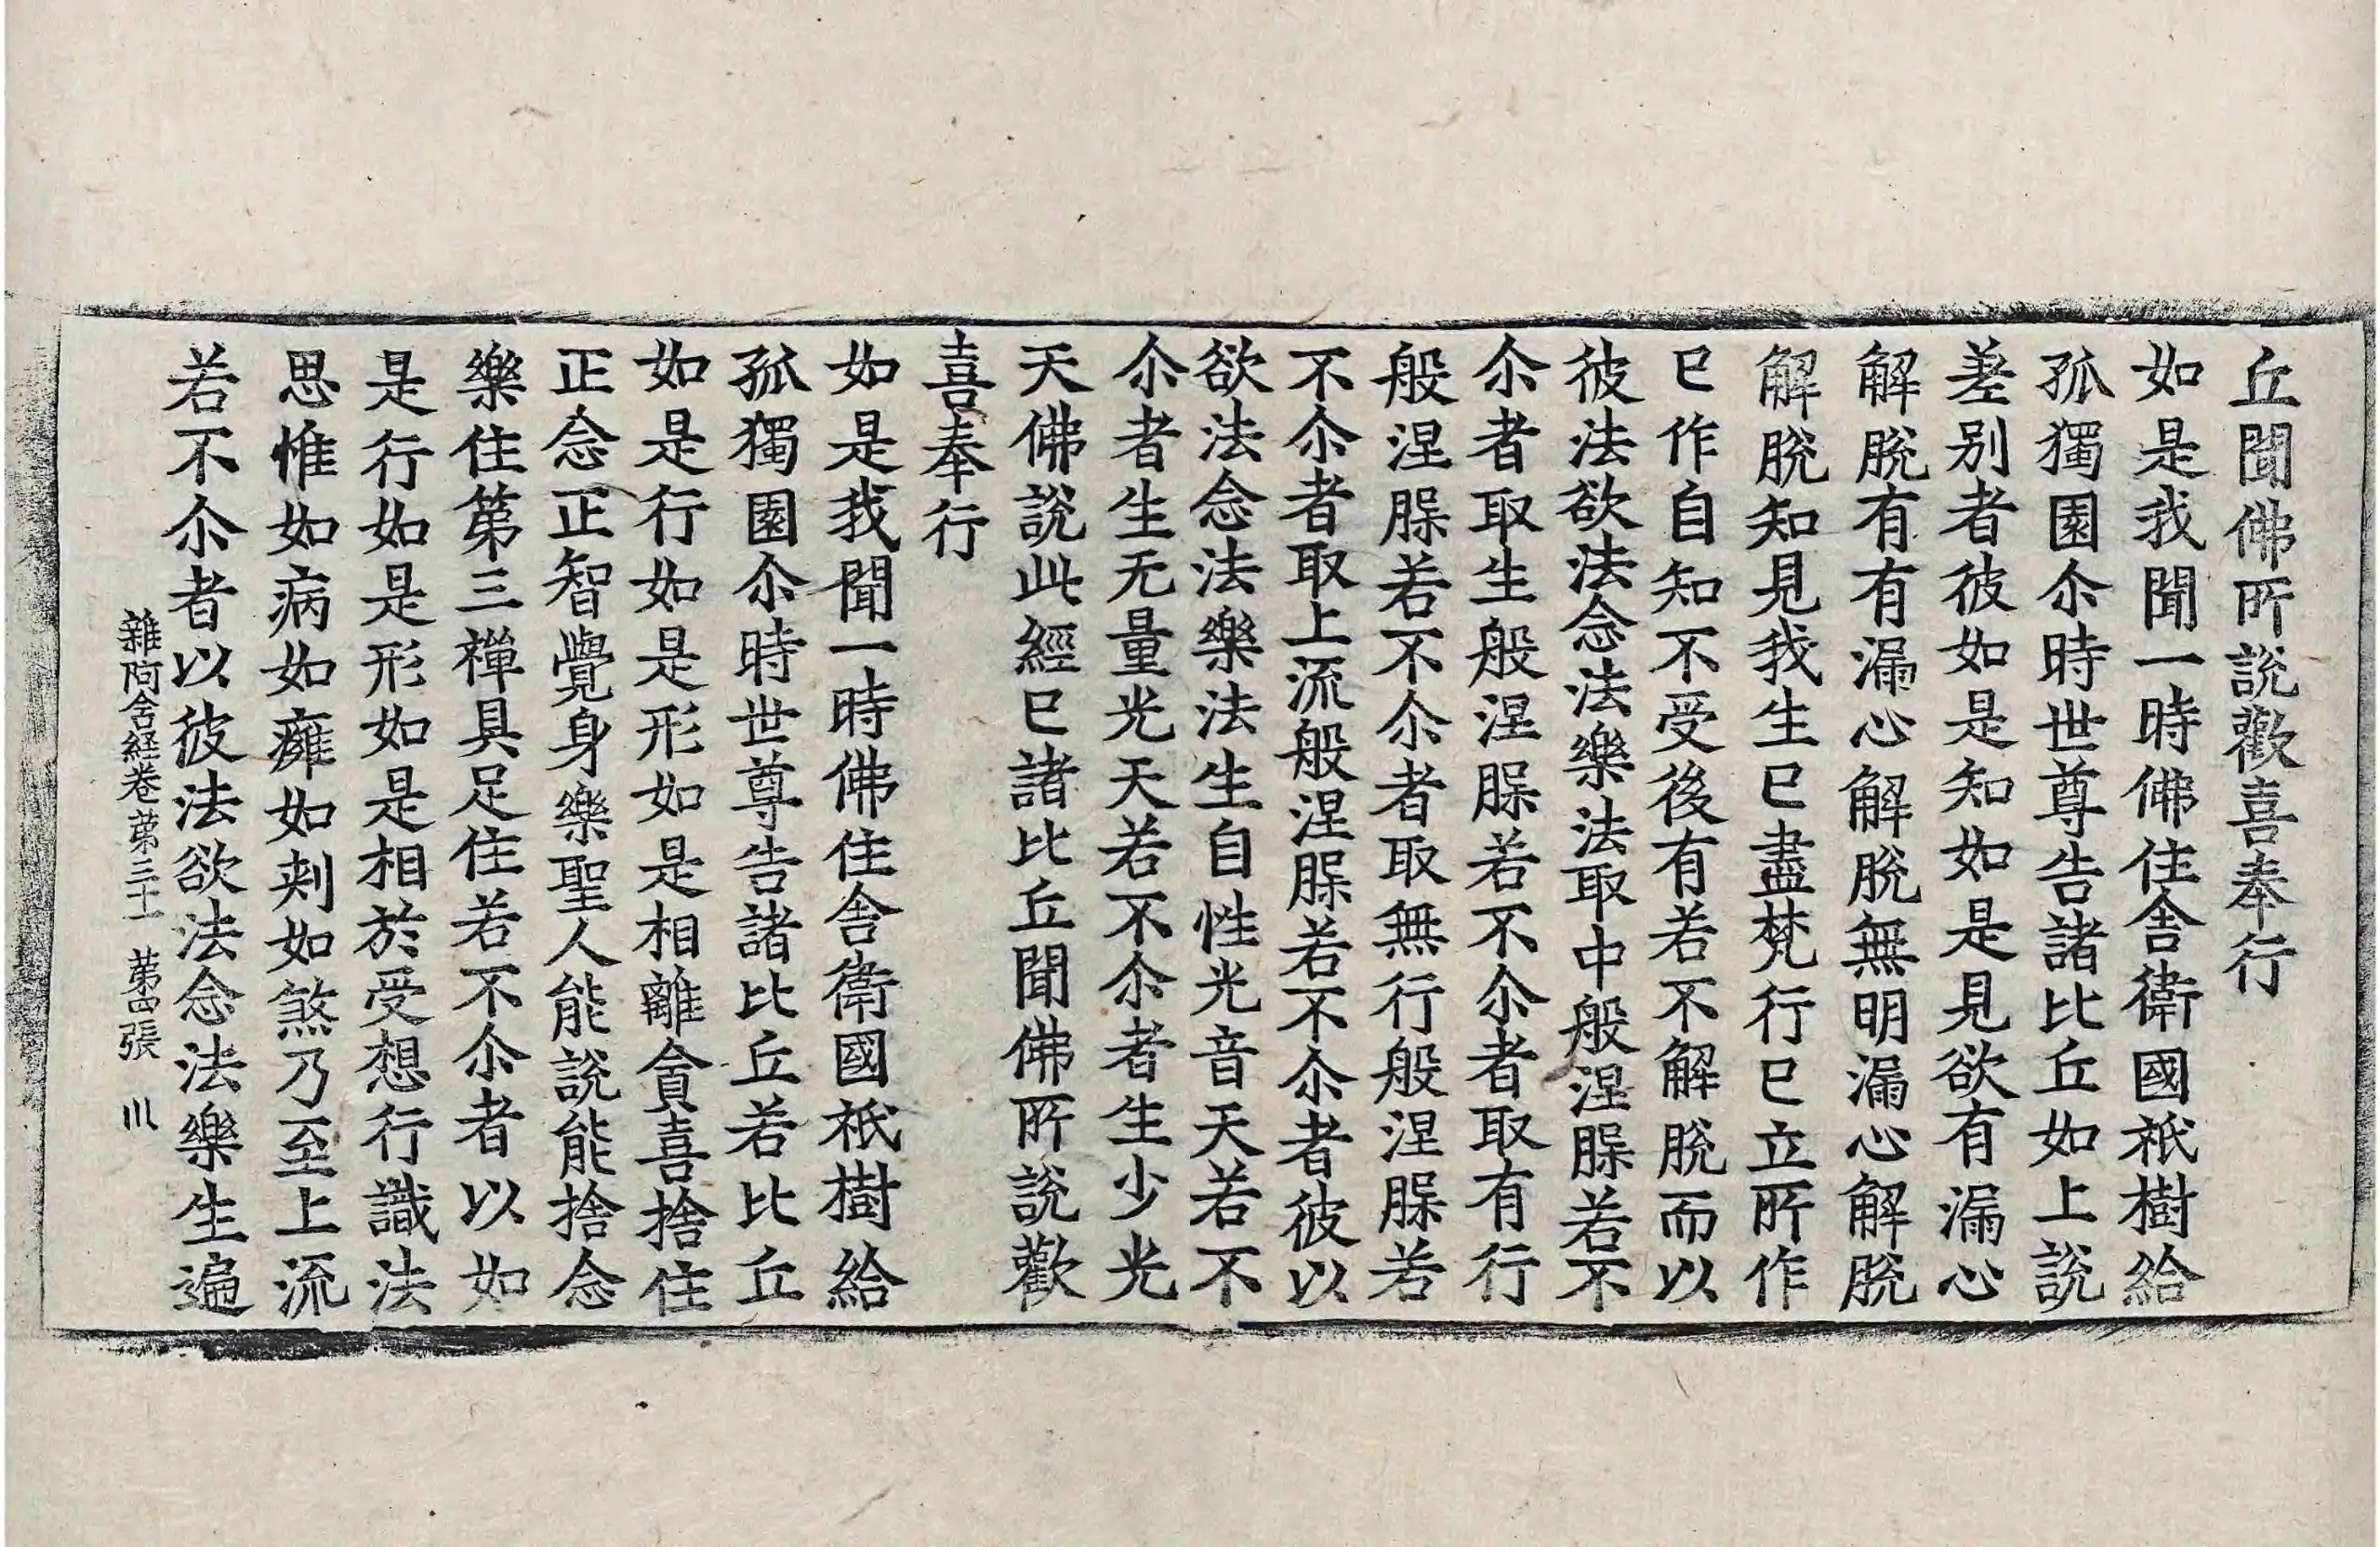 丘聞佛所說歡喜奉行
如是我聞一時佛住舍衛國祇樹給
孤獨園尒時世尊告諸比丘如上說
差別者彼如是知如是見欲有漏心
解脫有有漏心解脫無明漏心解脫
解脫知見我生已盡梵行已立所作
已作自知不受後有若不解脫而以
彼法欲法念法樂法取中般涅槃若不
尒者取生般涅槃若不尒者取有行
般涅槃若不尒者取無行般涅槃若
不尒者取上流般涅槃若不尒者彼以
欲法念法樂法生自性光音天若不
尒者生无量光天若不尒者生少光
天佛說此經已諸比丘聞佛所說歡
喜奉行
如是我聞一時佛住舍衛國祇樹給
孤獨園尒時世尊告諸比丘若比丘
如是行如是形如是相離貪喜捨住
正念正智覺身樂聖人能說能捨念
樂住第三禪具足住若不尒者以如
是行如是形如是相於受想行識法
思惟如病如癰如刾如煞乃至上流
若不尒者以彼法欲法念法樂生遍
雜阿含経卷苐三十一 苐四張 川